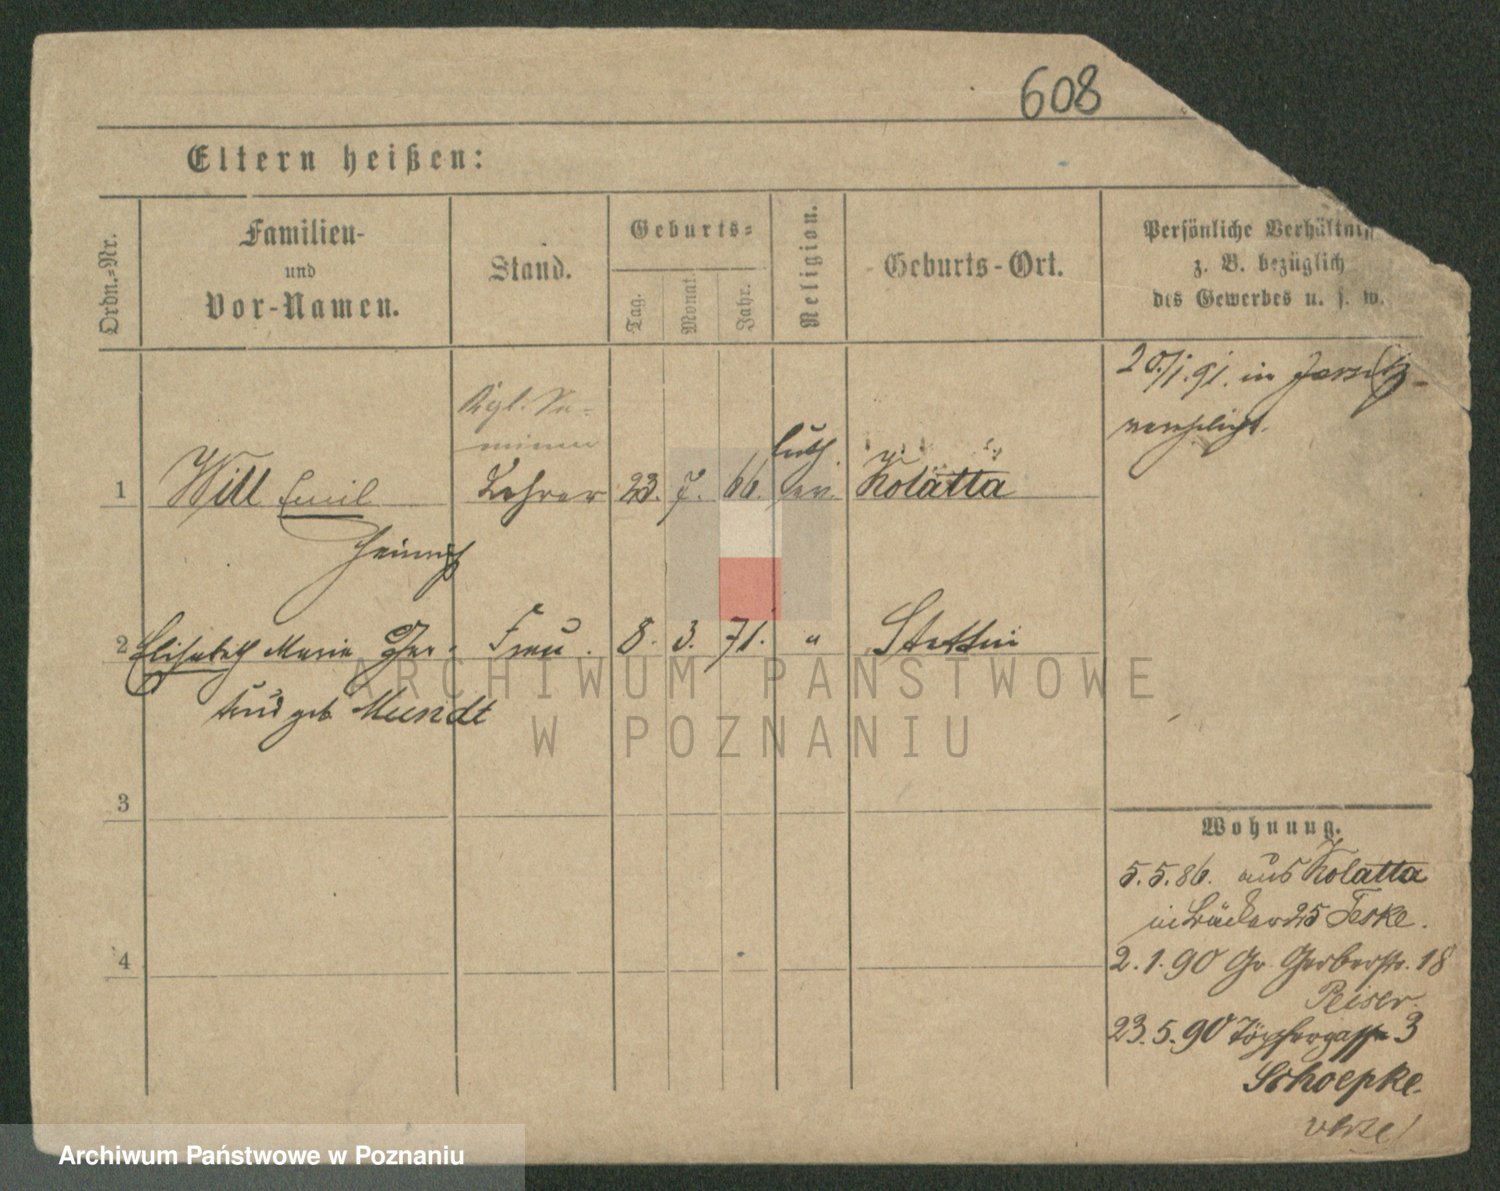 608
Eltern heißen:
Ordn.-Nr.
Familien-
und
Vor-Namen.
Stand.
Geburts-
Tag.
Monat.
Jahr.
Religion.
Geburts-Ort.
Persönliche Verhältnis
z. B. bezüglich
des Gewerbes u. s. w.
20./1.91. in Jersitz
verehelicht.
Kgl. Se-
minar
1 Will Emil Lehrer 23. 7. 66. luth. ev. Kolatta
Heinrich
2 Elisabeth Marie Ger- Frau. 8. 3. 71. " Stettin
trud geb Mundt
3
4
Wohnung.
5.5.86. aus Kolatta
in Bäcker 25 Teske.
2.1.90 Gr. Gerberstr. 18
Peiser.
23.5.90 Töpfergasse 3
Schoepke.
ARCHIWUM PAŃSTWOWE
W POZNANIU
Archiwum Państwowe w Poznaniu